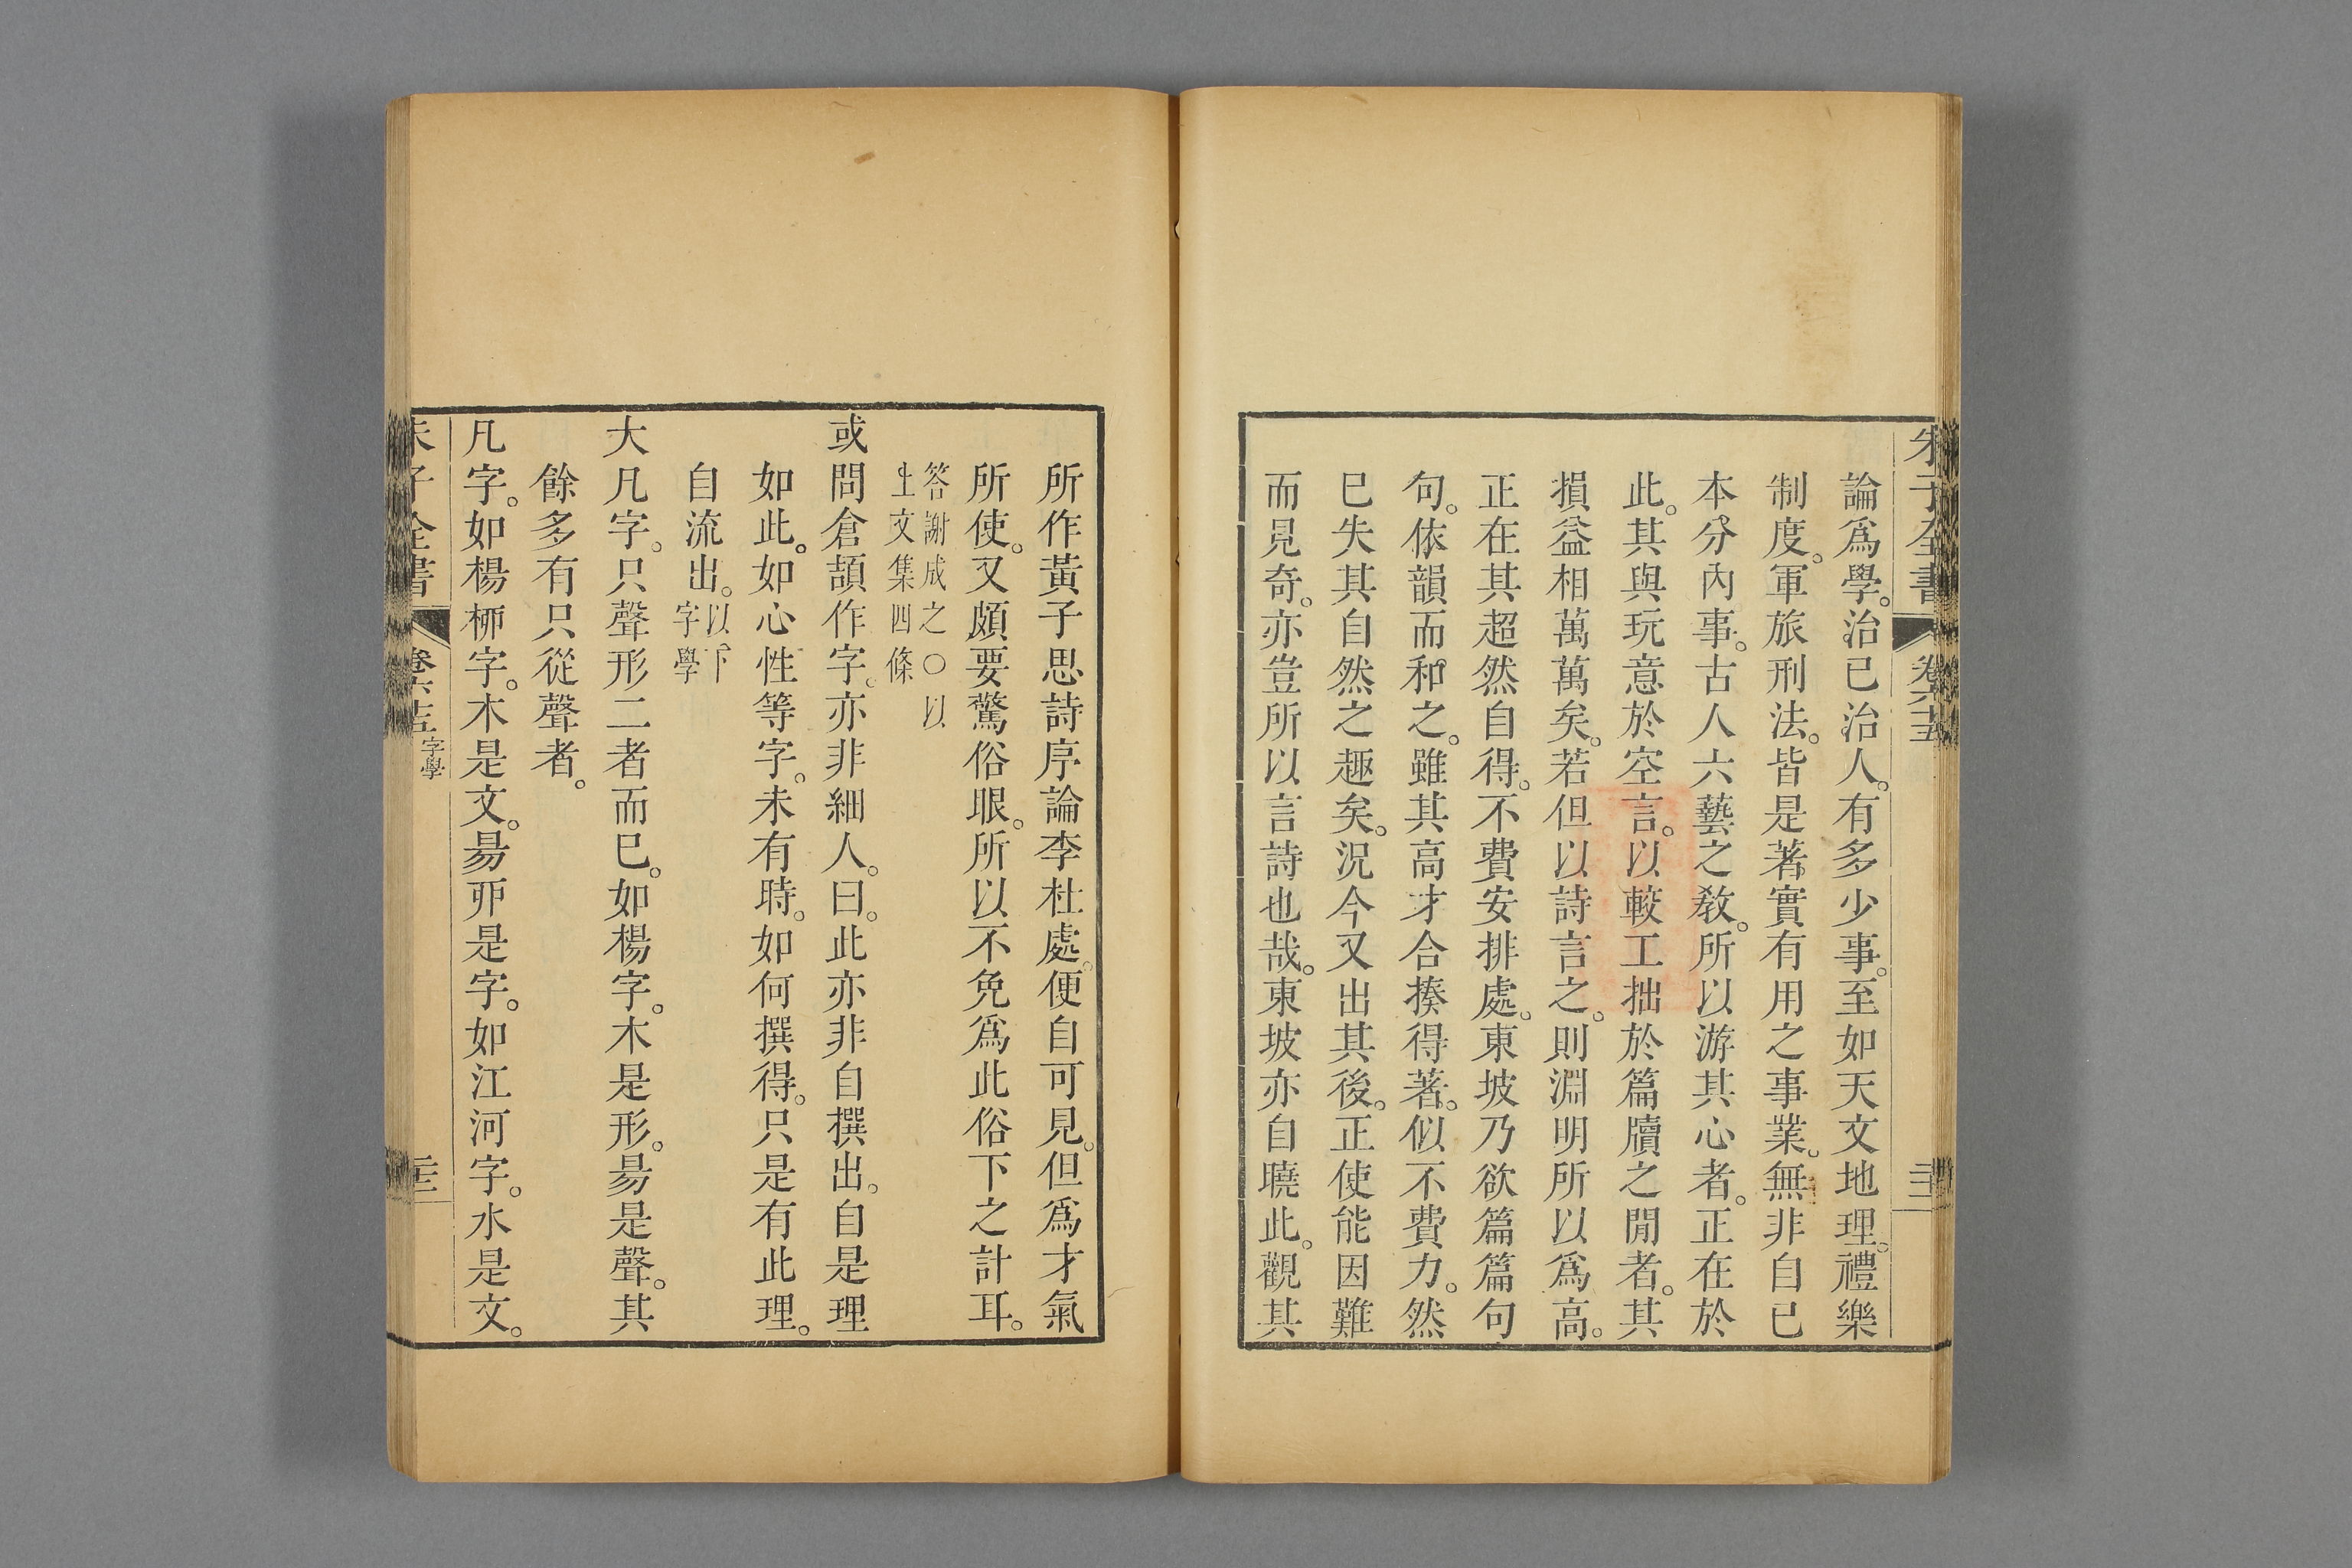 朱子全書 卷六十五
論爲學。治已治人。有多少事。至如天文地理。禮樂
制度。軍旅刑法。皆是著實有用之事業。無非自已
本分內事。古人六藝之敎。所以游其心者。正在於
此。其與玩意於空言。以較工拙於篇牘之閒者。其
損益相萬萬矣。若但以詩言之。則淵明所以爲高。
正在其超然自得。不費安排處。東坡乃欲篇篇句
句。依韻而和之。雖其高才合揍得著。似不費力。然
已失其自然之趣矣。況今又出其後。正使能因難
而見奇。亦豈所以言詩也哉。東坡亦自曉此。觀其
所作黃子思詩序論李杜處。便自可見。但爲才氣
所使。又頗要驚俗眼。所以不免爲此俗下之計耳。
答謝成之○以
上文集四條
或問倉頡作字。亦非細人。曰。此亦非自撰出。自是理
如此。如心性等字。未有時。如何撰得。只是有此理。
自流出。以下
字學
大凡字。只聲形二者而已。如楊字。木是形。昜是聲。其
餘多有只從聲者。
凡字。如楊柳字。木是文。昜丣是字。如江河字。水是文。
朱子全書 卷六十五 字學